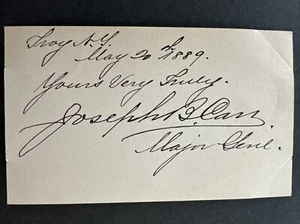 Troy N.Y.
May 20th 1889.
Yours Very Truly.
Joseph B. Carr
Major Genl.